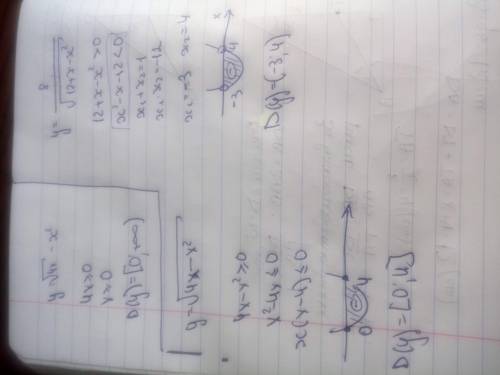 y = 8/√(12+x-x²)
12+x-x²>0
x²-x-12<0
x₁+x₂=1
x₁·x₂=-12
x₁=-3 x₂=4
-3 4 x
D(y)=(-3;4)
y=√4x - x²
4x≥0
x≥0
D(y)=[0;+∞)
y=√(4x-x²)
4x-x²≥0
x²-4x≤0
x(x-4)≤0
0 4
D(y)=[0;4]